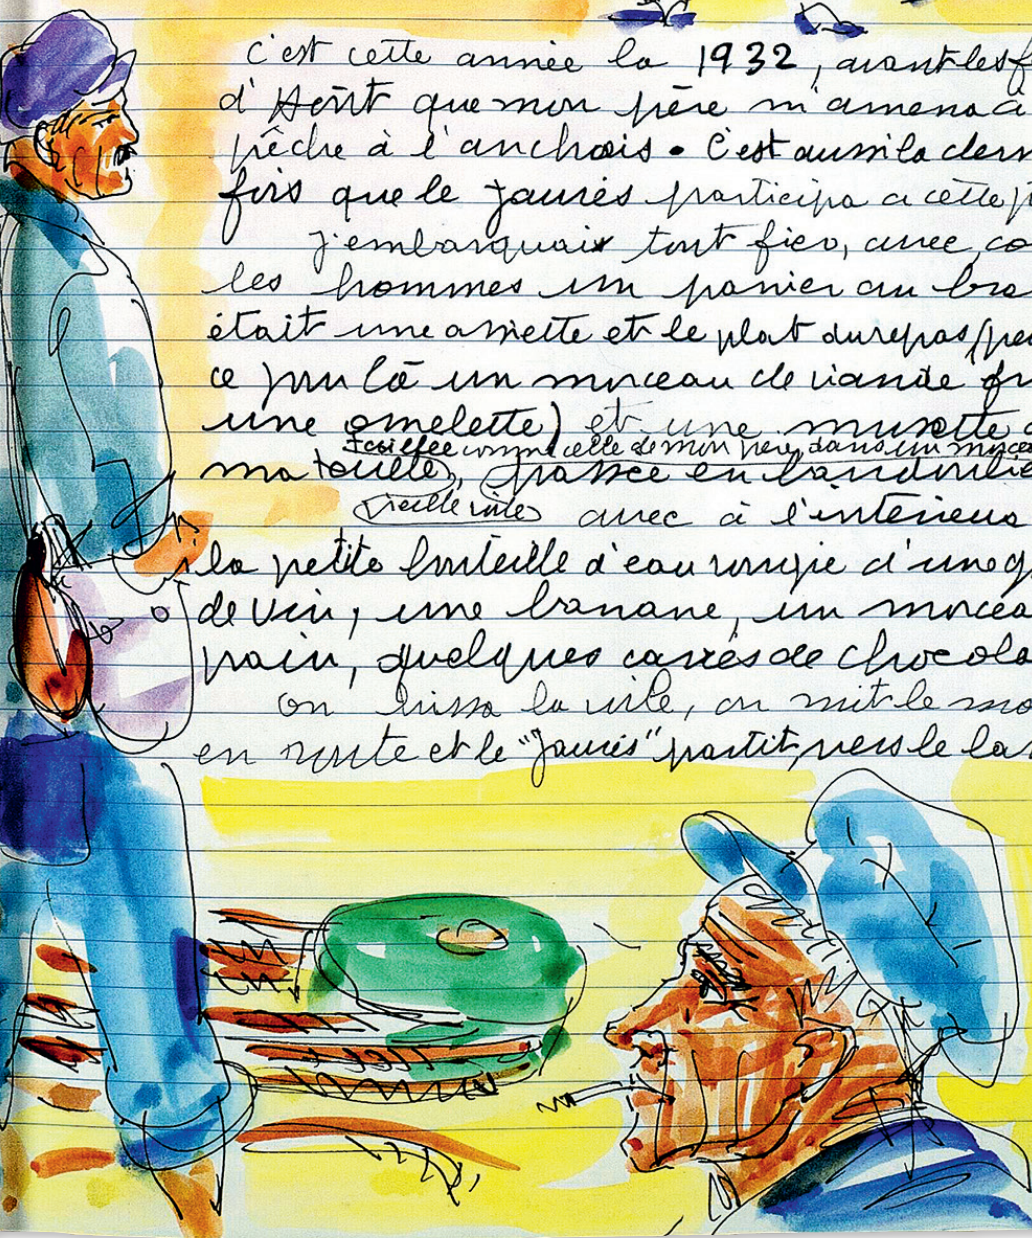 c'est cette année la 1932, avant les f
d'Août que mon père m'amena a
pêche à l'anchois. C'est aussi la dern
fois que le Jaurés participa a cette p
j'embarquais tout fier, avec, co
les hommes un panier au bra
était une assiette et le plat du repas (
ce jour là un morceau de viande fr
une omelette) et une musette
taillée comme celle de mon père, dans un morce
ma touille, passée en bandouliè
vieille voile avec à l'intérieur
la petite bouteille d'eau rougie d'une g
de vin, une banane, un morcea
pain, quelques carrés de chocola
on hissa la voile, on mit le mo
en route et le "Jaurés" partit, vers le la